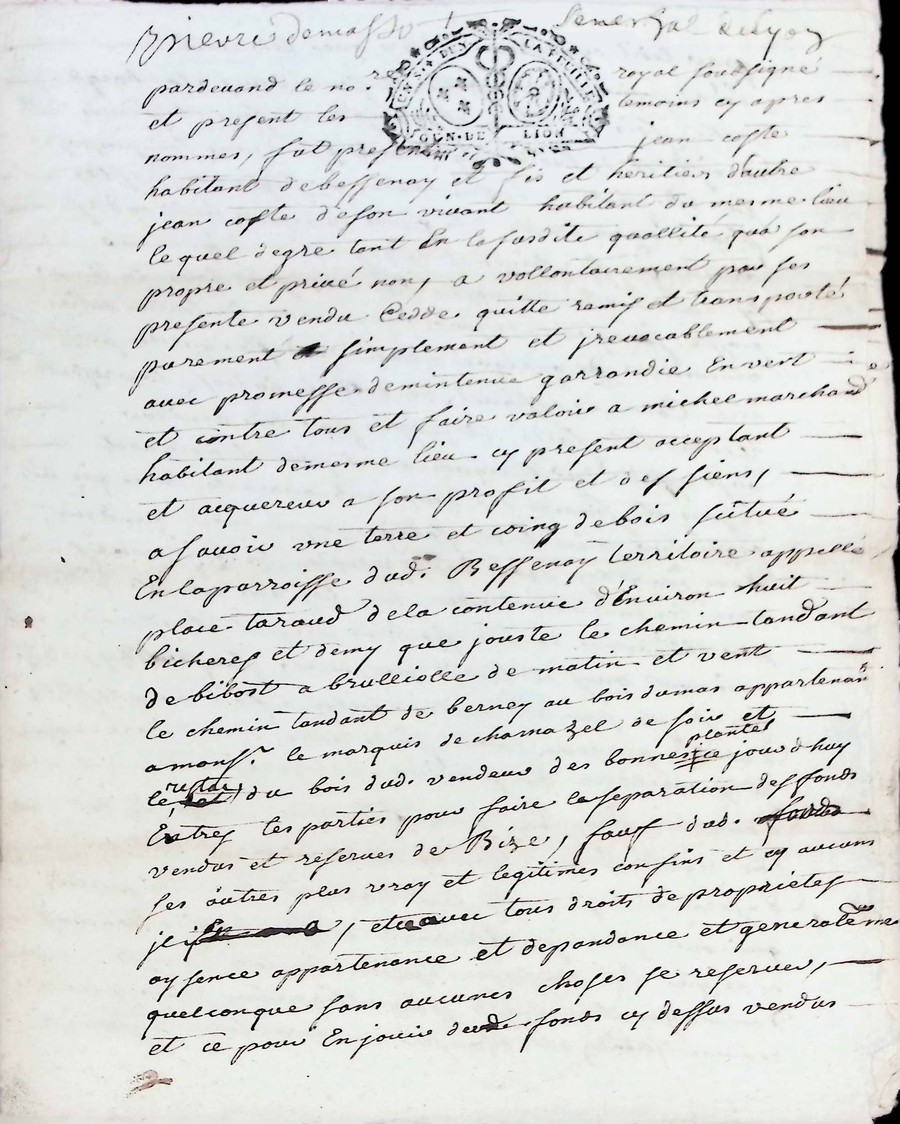 pardevand le no re royal soussigné
et present les temoins cy apres
nommes, fut present jean coste
habitant de bessenay et fis et heritier d'autre
jean coste de son vivant habitant du mesme lieu
le quel de gre tant En la susdite quallité qua son
propre et privé nom, a vollontairement par ses
presente vendu Cedde quitte remis et transporté
purement et simplement et jrevocablement
avec promesse de mintenue garrandie Envert
et contre tous et faire valoir a michel marchand
habitant de mesme lieu cy present acceptant
et acquereur a son profit et des siens,
a savoir vne terre et coing de bois scitué
En la parroisse dud. Bessenay territoire appellé
place taraud de la contenue d'Environ huit
bicheres et demy que jouste le chemin tandant
de bibost a brulliolle de matin et vent
le chemin tandant de berney au bois dumas appartenan
a mons.r le marquis de chamazel de soir et
le restan du bois dud. vendeur des bornes plantes ce jourd'huy
Entres les parties pour faire la separation des fonds
vendus et reserves de Bize, sauf dud.
ses autres plus vray et legitimes confins et cy aucuns
avec tous droits de proprietes
aysence appartenance et dependance et generalleme
quelconque sans aucunes choses se reserver,
et ce pour En jouir fonds cy dessus vendus